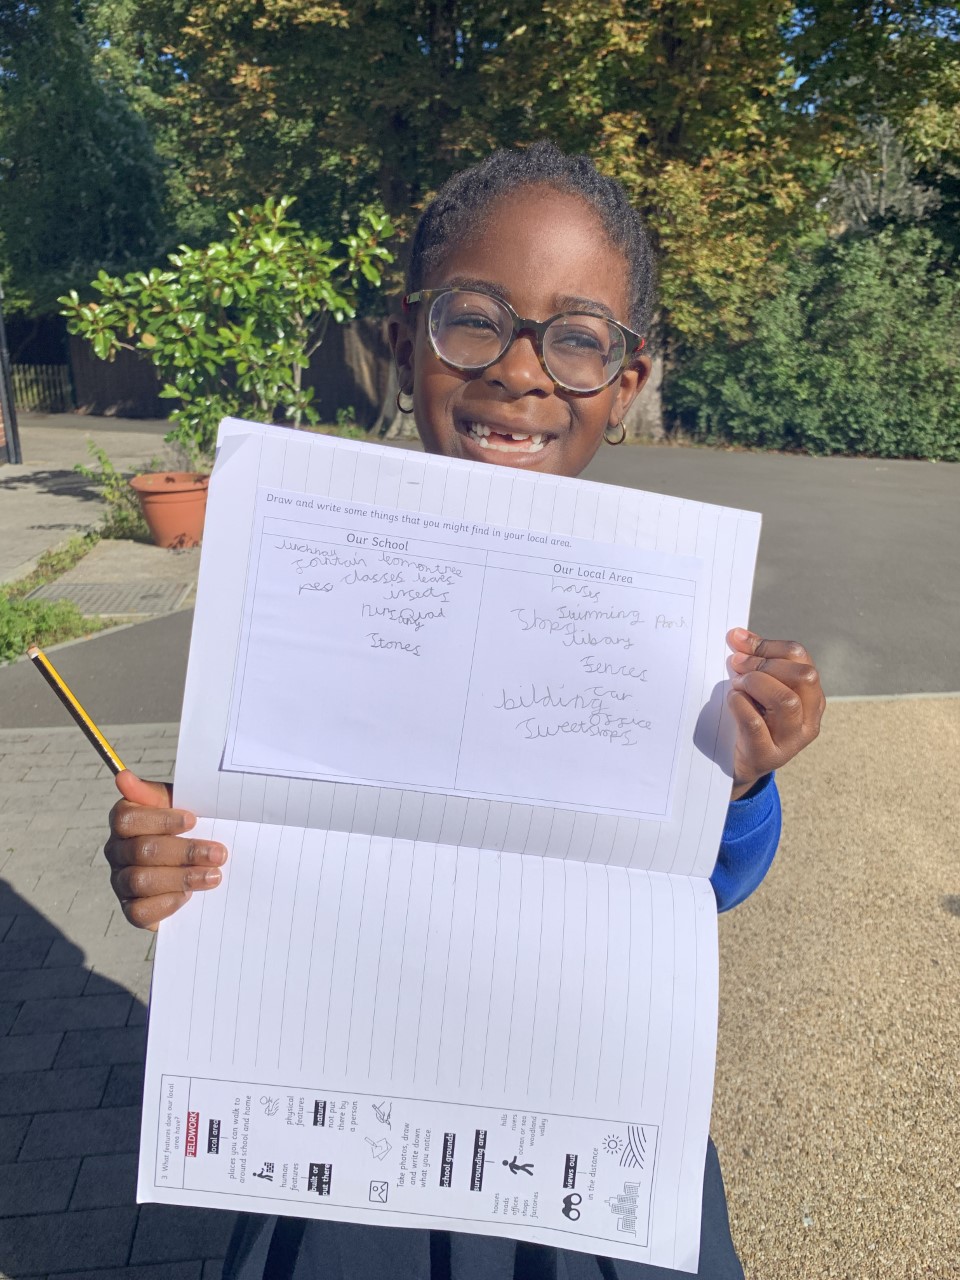 Draw and write some things that you might find in your local area.
Our School
lunchhall
fountain lemontree
classes leaves
insects
Quad
Stones
Our Local Area
houses
Swimming Park
Shops
library
Fences
car
bilding
office
Sweetshops
3. What features does our local area have?
FIELDWORK
local area
places you can walk to
around school and home
human
features
built or
put there
physical
features
natural
not put
there by
a person
Take photos, draw
and write down
what you notice.
school grounds
surrounding area
houses
roads
offices
shops
factories
hills
rivers
ocean or sea
woodland
valley
views out
in the distance